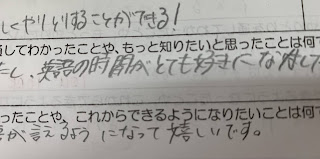 しくやりとりすることができる!
してわかったことや、もっと知りたいと思ったことは何で
たし、英語の時間がとても好きになりました
ったことや、これからできるようになりたいことは何で
が言えるようになって嬉しいです。